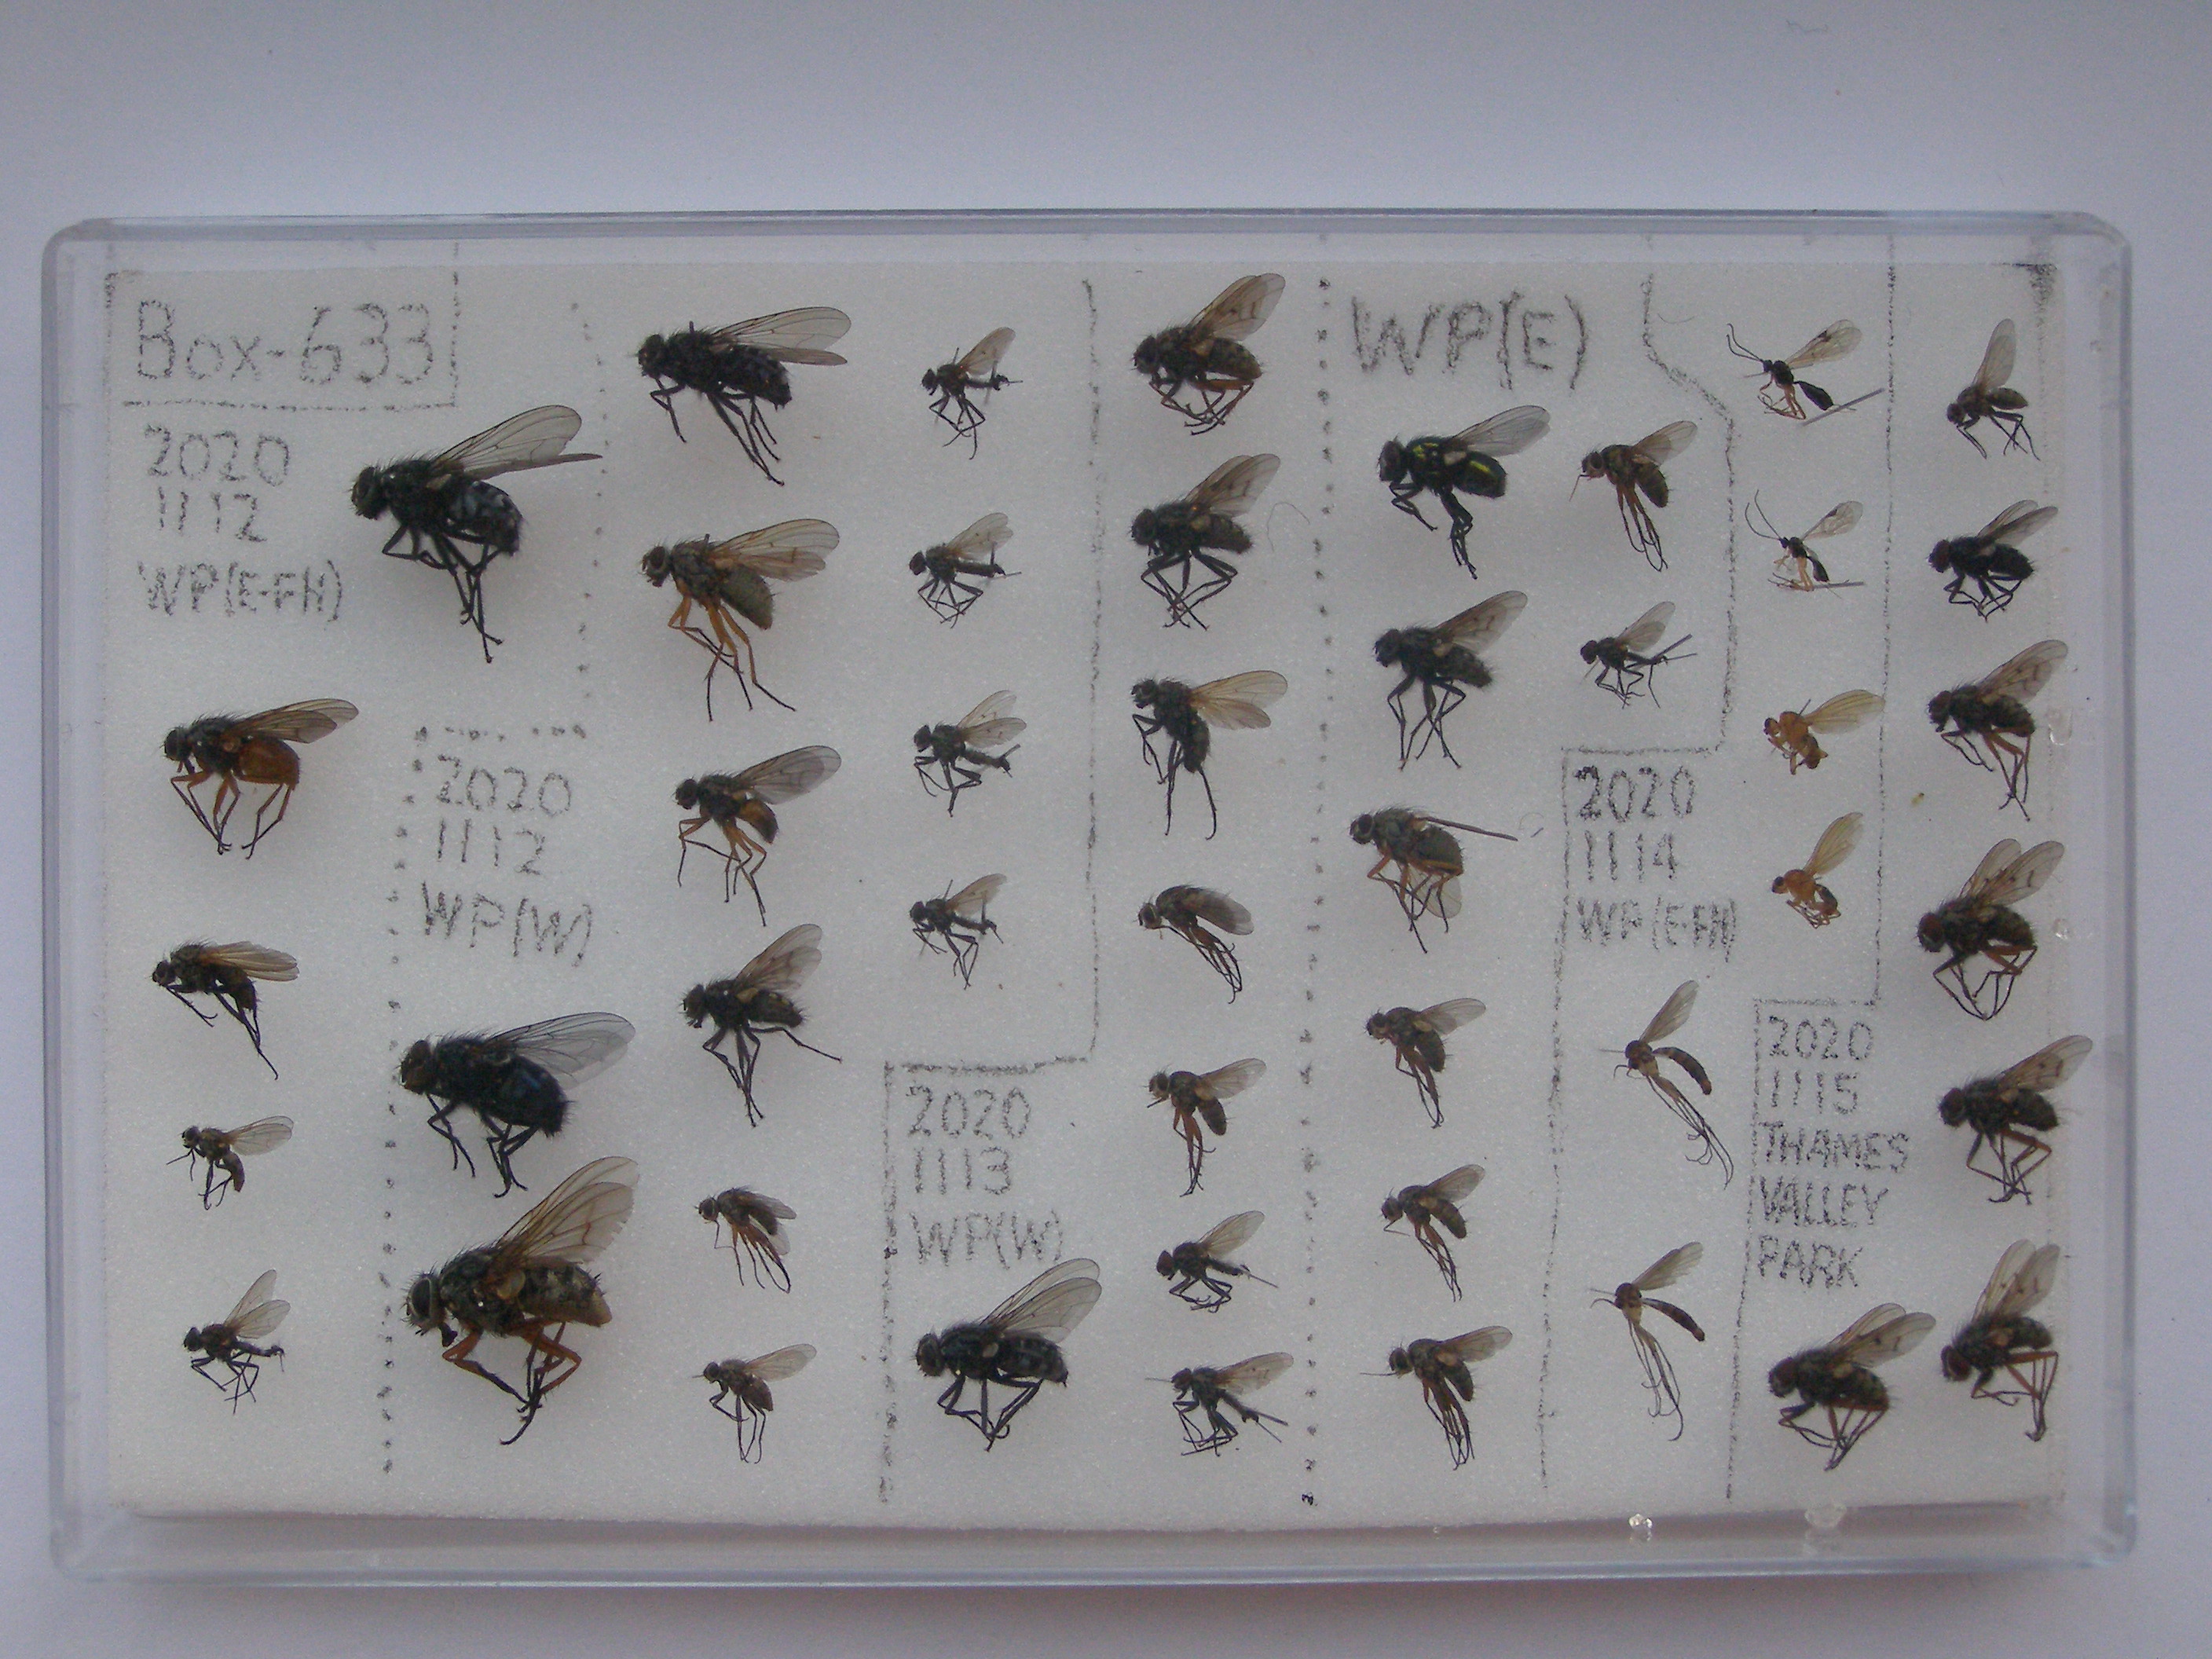 Box-633
2020
11 12
WP(E-FH)
2020
11 12
WP(W)
2020
11 13
WP(W)
WP(E)
2020
11 14
WP(E-FH)
2020
11 15
THAMES
VALLEY
PARK